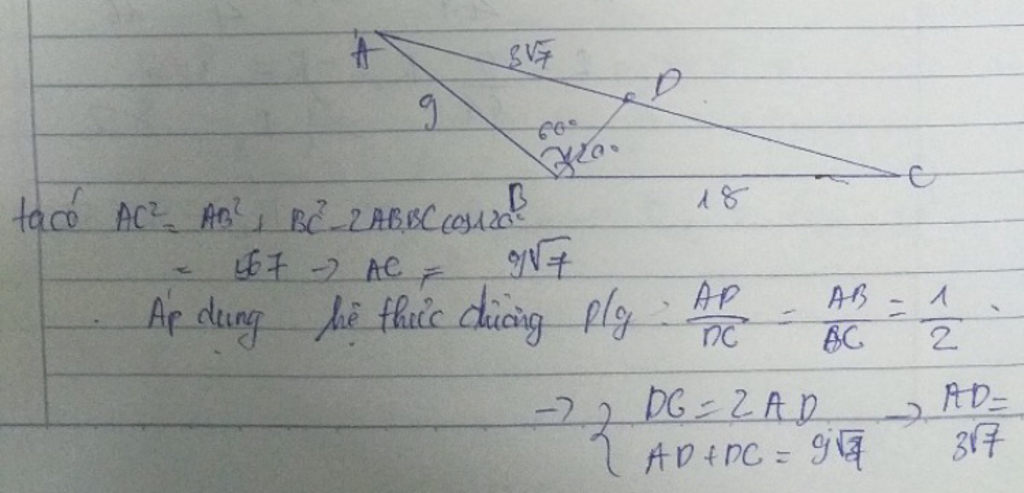 A
3√7
D
9
60°
120°
B
18
C
ta có AC² = AB² + BC² - 2AB.BC cos120°
= 567 → AC = 9√7
Áp dụng hệ thức đường p/g : AD/DC = AB/BC = 1/2 .
→ { DC = 2AD → AD =
AD + DC = 9√7 3√7